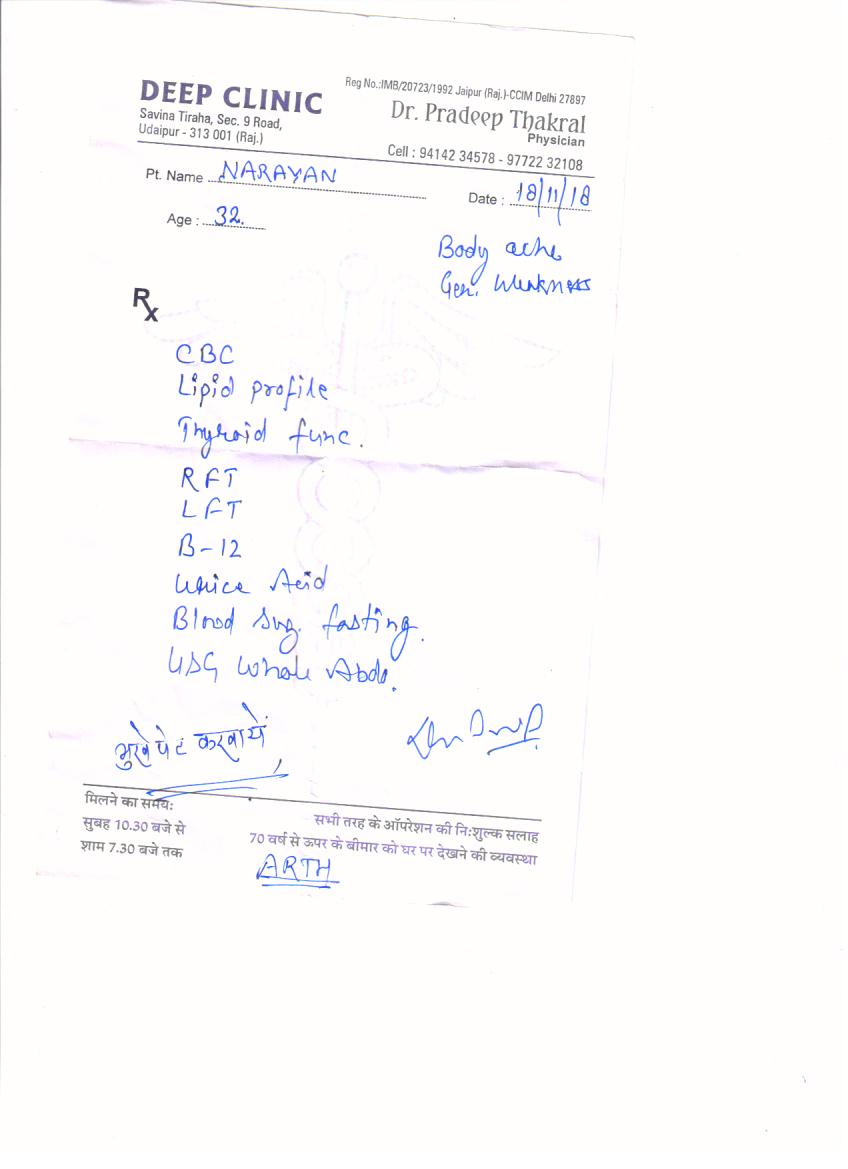 DEEP CLINIC
Savina Tiraha, Sec. 9 Road,
Udaipur - 313 001 (Raj.)
Reg No.:IMB/20723/1992 Jaipur (Raj.)-CCIM Delhi 27897
Dr. Pradeep Thakral
Physician
Cell : 94142 34578 - 97722 32108
Pt. Name NARAYAN
Date : 18/11/18
Age : 32.
Body ache
Gen. Weakness
Rx
CBC
Lipid profile
Thyroid func.
RFT
LFT
B-12
Urice Acid
Blood sug. fasting.
USG Whole Abdo.
भुखे पेट करवायें
मिलने का समयः
सुबह 10.30 बजे से
शाम 7.30 बजे तक
सभी तरह के ऑपरेशन की निःशुल्क सलाह
70 वर्ष से ऊपर के बीमार को घर पर देखने की व्यवस्था
ARTH